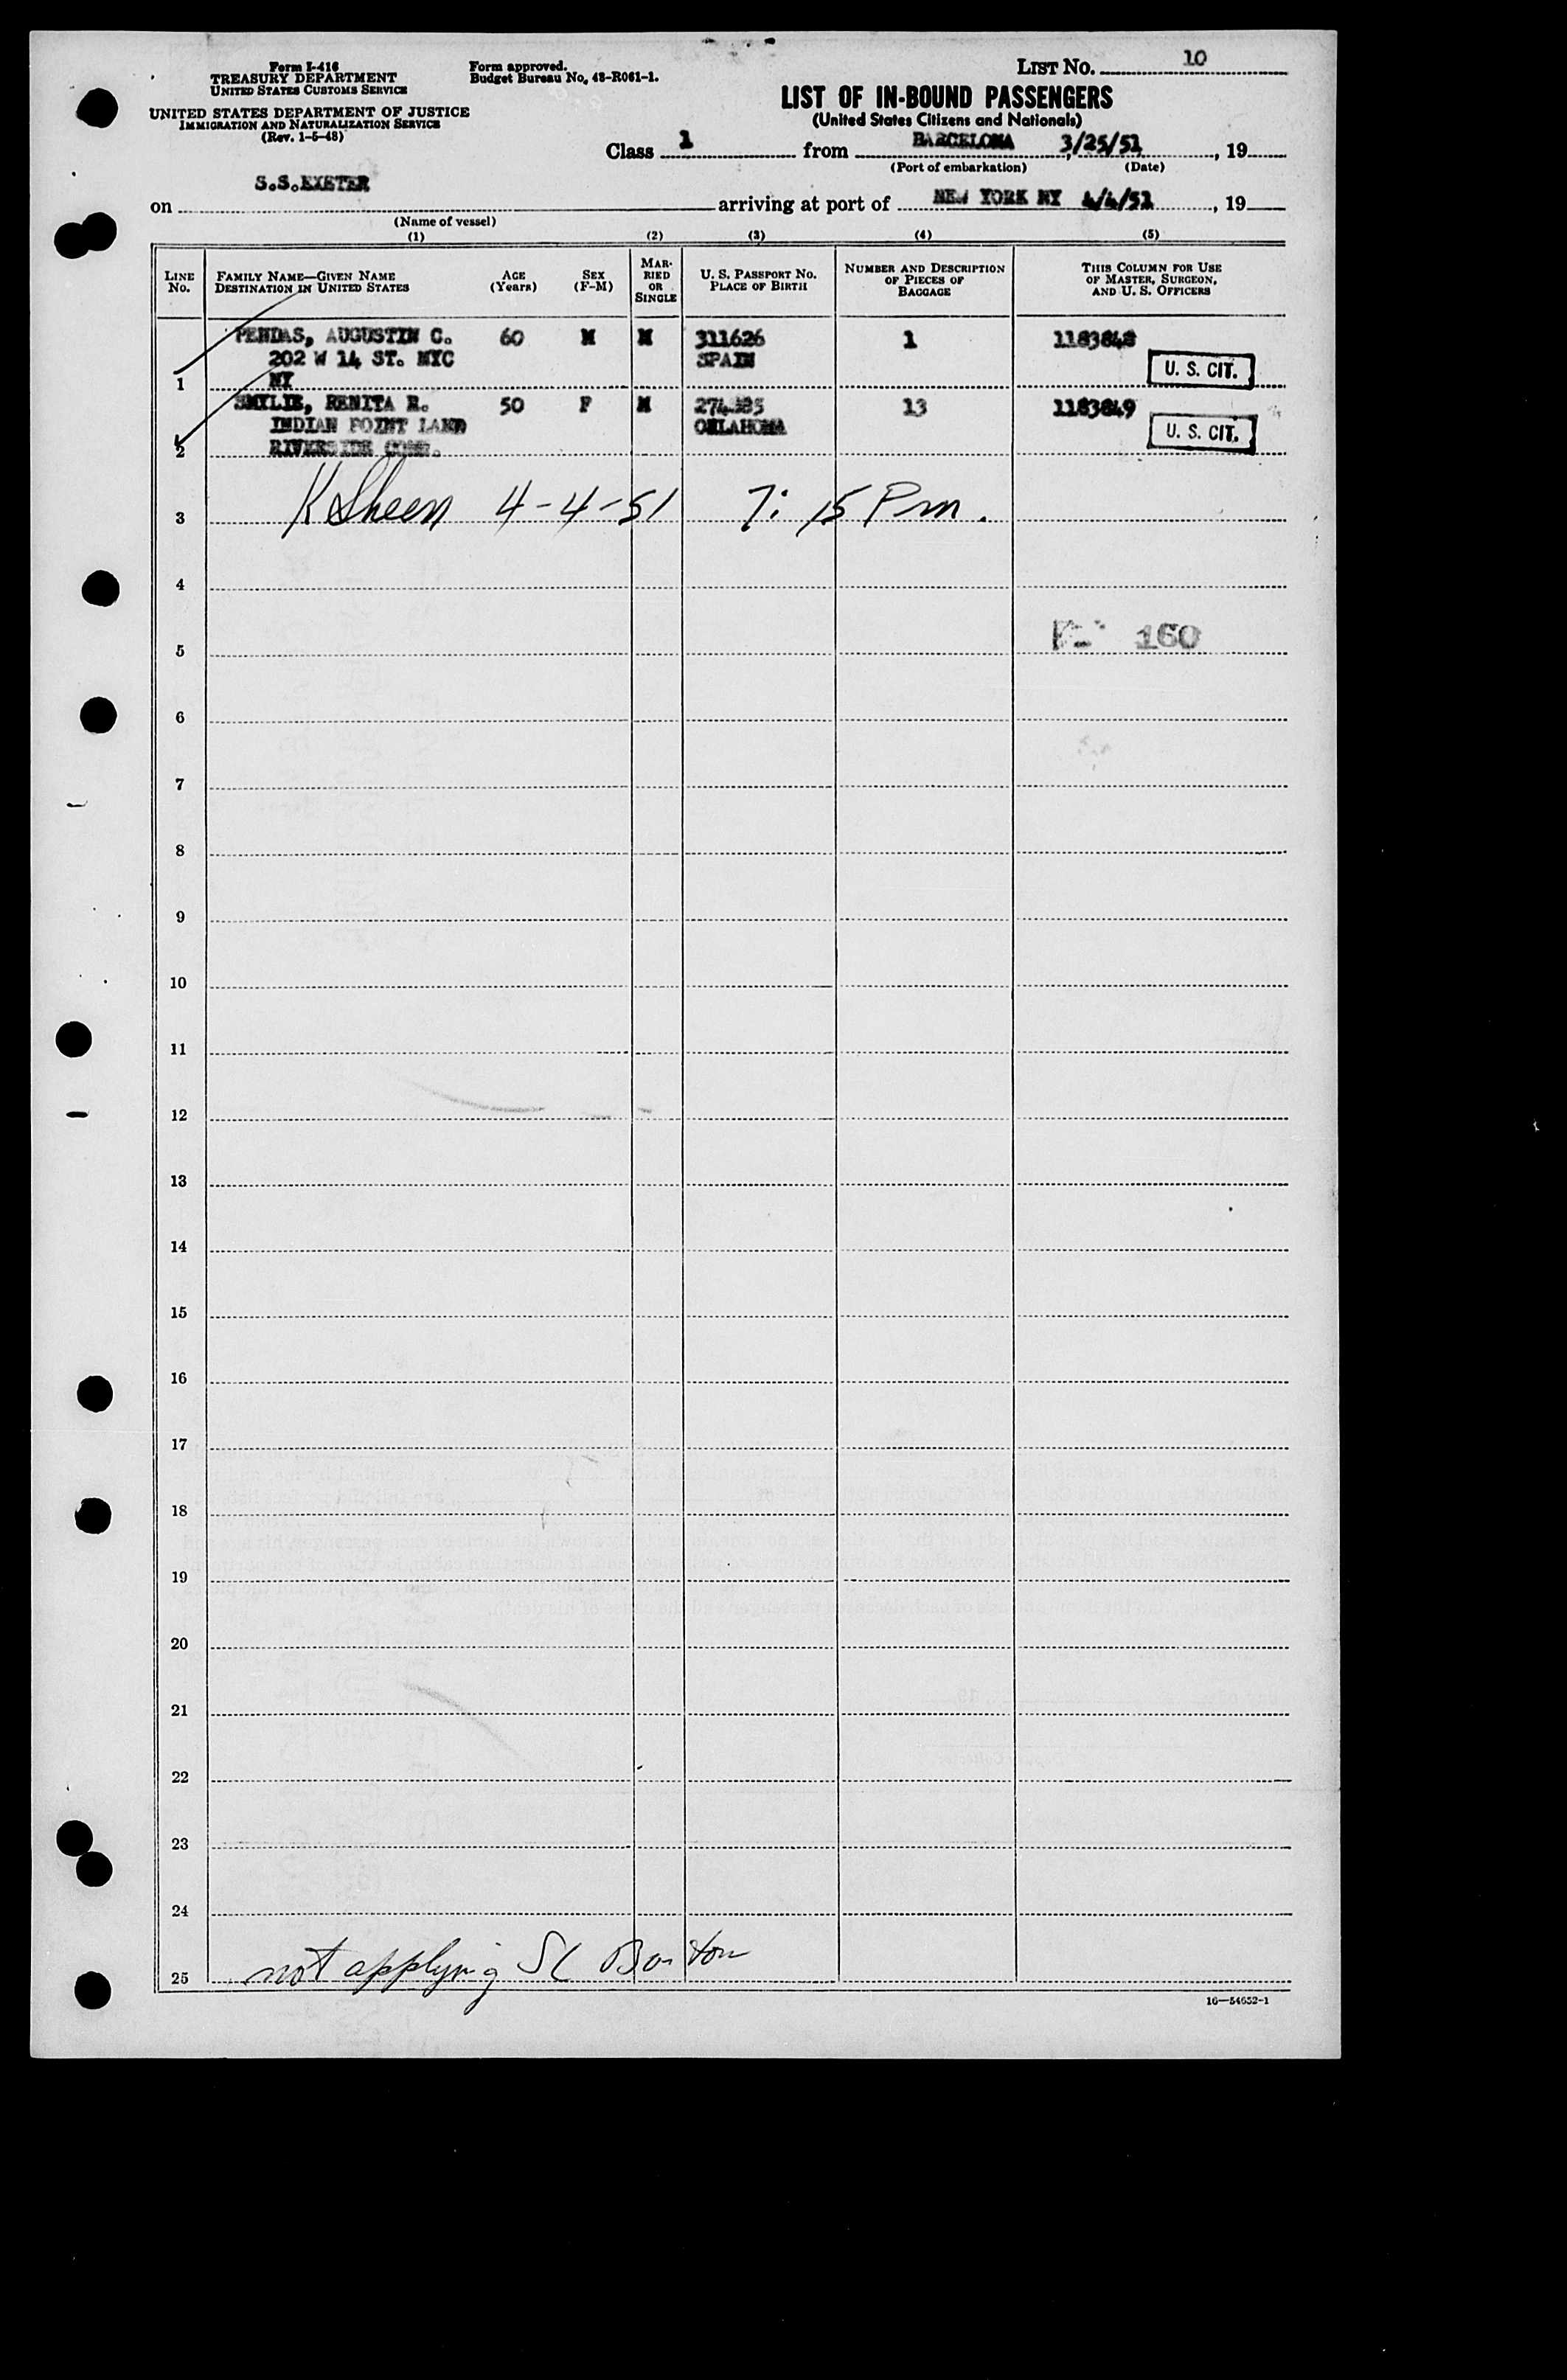 Form I-416
TREASURY DEPARTMENT
UNITED STATES CUSTOMS SERVICE
UNITED STATES DEPARTMENT OF JUSTICE
IMMIGRATION AND NATURALIZATION SERVICE
(Rev. 1-5-48)
Form approved.
Budget Bureau No. 43-R061-1.
LIST NO. 10
LIST OF IN-BOUND PASSENGERS
(United States Citizens and Nationals)
Class 1 from BARCELONA 3/25/51, 19
(Port of embarkation) (Date)
on S.S.EXETER arriving at port of NEW YORK NY 4/4/51, 19
(Name of vessel)
(1) (2) (3) (4) (5)
LINE NO.
FAMILY NAME—GIVEN NAME
DESTINATION IN UNITED STATES
AGE (Years)
SEX (F-M)
MARRIED OR SINGLE
U. S. PASSPORT NO.
PLACE OF BIRTH
NUMBER AND DESCRIPTION OF PIECES OF BAGGAGE
THIS COLUMN FOR USE OF MASTER, SURGEON, AND U. S. OFFICERS
PENDAS, AUGUSTIN C. 60 M M 311626 1 1183848
202 W 14 ST. NYC SPAIN U. S. CIT.
1 NY
SMYLIE, RENITA R. 50 F M 13 1183849
INDIAN POINT LAND OKLAHOMA U. S. CIT.
2 RIVERSIDE CONN.
3 K Sheen 4-4-51 7:15 Pm.
4
5 160
6
7
8
9
10
11
12
13
14
15
16
17
18
19
20
21
22
23
24
25 not applying SC Boston
16—54652-1